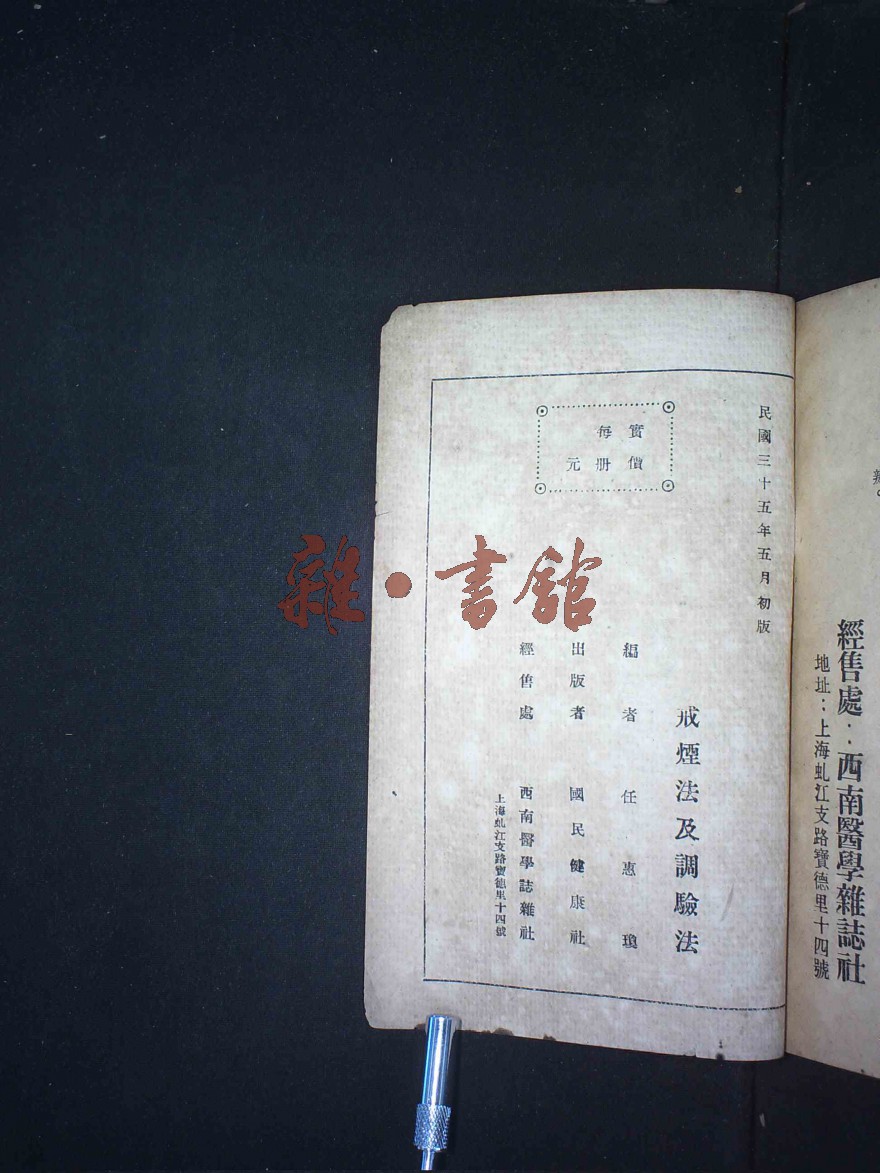 辦。
經售處：西南醫學雜誌社
地址：上海虬江支路寶德里十四號
民國三十五年五月初版
戒煙法及調驗法
實價
每冊
元
編者 任惠瓊
出版者 國民健康社
經售處 西南醫學誌雜社
上海虬江支路寶德里十四號
雜·書館